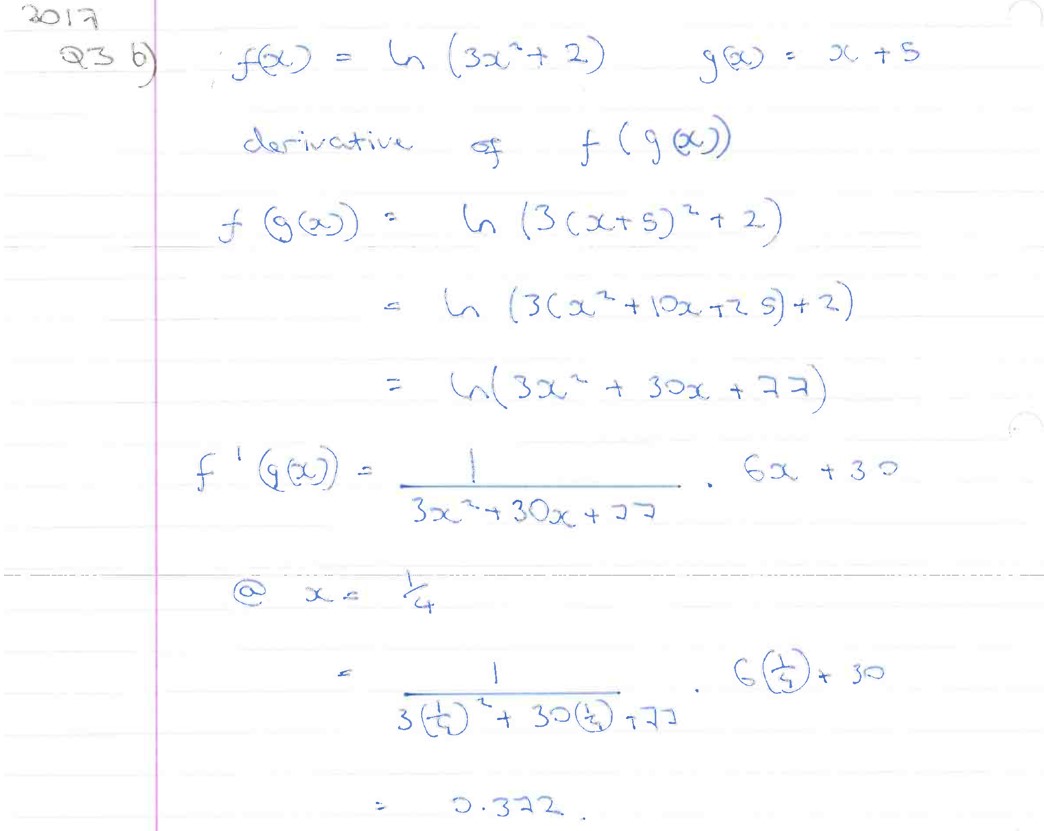 2017
Q3 b) f(x) = ln (3x² + 2) g(x) = x + 5
derivative of f(g(x))
f(g(x)) = ln (3(x+5)² + 2)
= ln (3(x² + 10x + 25) + 2)
= ln(3x² + 30x + 77)
f'(g(x)) = 1/(3x² + 30x + 77) . 6x + 30
@ x = 1/4
= 1/(3(1/4)² + 30(1/4) + 77) . 6(1/4) + 30
= 0.372.